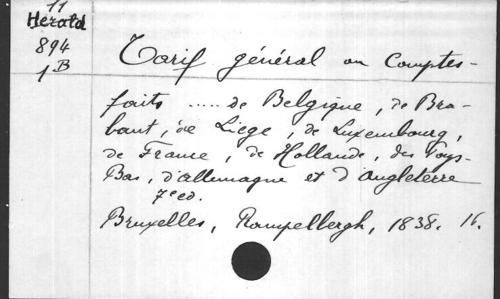 11
Herald
894
1B
Tarif général ou Comptes-
faits ..... de Belgique, de Bra-
bant, de Liege, de Luxembourg,
de France, de Hollande, des Pays-
Bas, d'allemagne et d'angleterre
7e ed.
Bruxelles, Rampelbergh, 1838. 16.